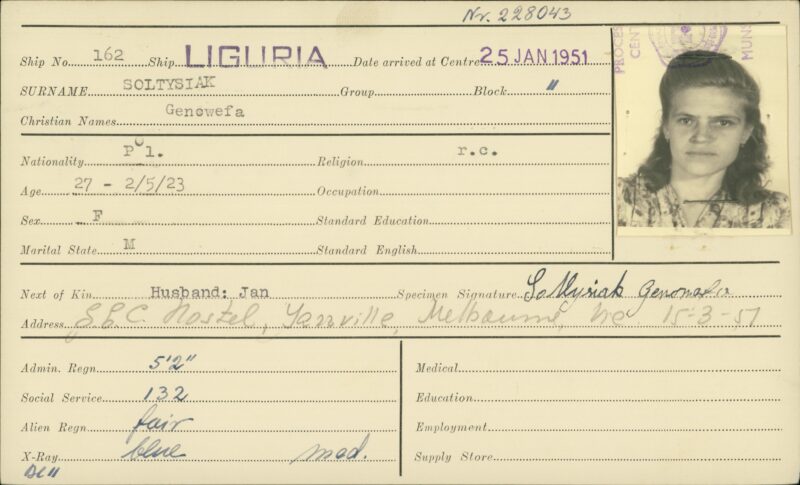 Nr. 228043
Ship No. 162 Ship LIGURIA Date arrived at Centre 25 JAN 1951
SURNAME SOLTYSIAK Group Block "
Christian Names Genowefa
Nationality Pol. Religion r.c.
Age 27 - 2/5/23 Occupation
Sex F Standard Education
Marital State M Standard English
Next of Kin Husband: Jan Specimen Signature Soltysiak Genowefa
Address Hostel, Yarraville, Melbourne, Vic 15-3-51
Admin. Regn 5'2" Medical
Social Service 132 Education
Alien Regn fair Employment
X-Ray blue med. Supply Store
PROCES
CENT
MUNS